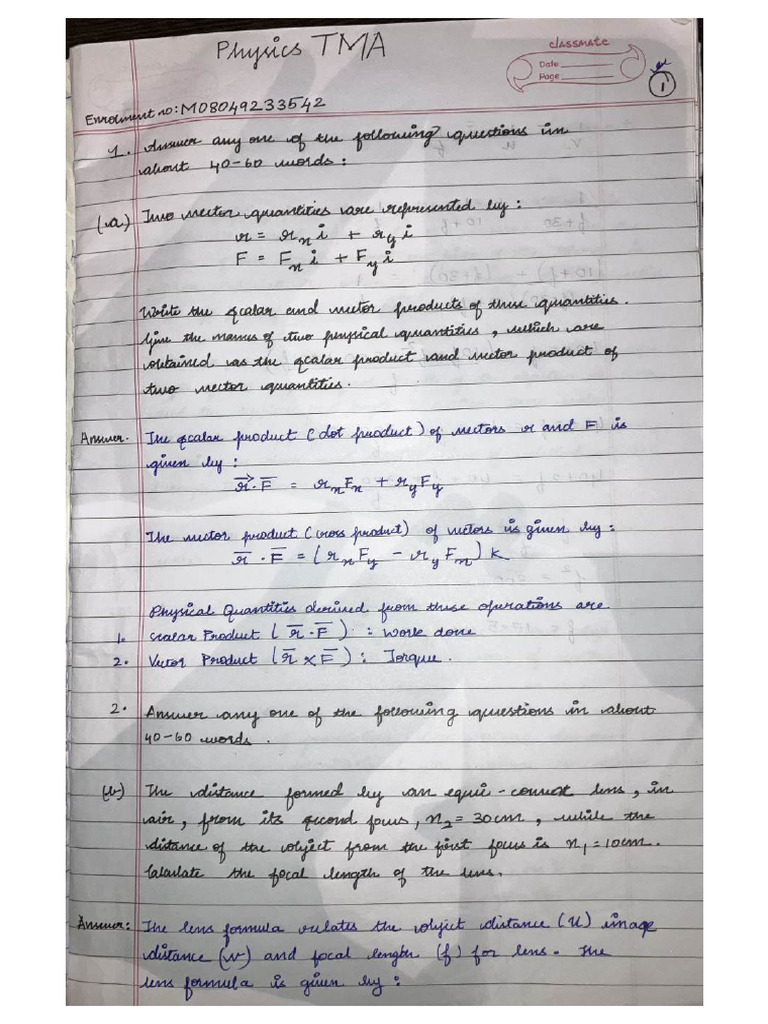 Physics TMA
classmate
Date
Page
1
Enrolment no: M08049233542
1. Answer any one of the following questions in
about 40-60 words :
(a) Two vector quantities are represented by :
r = rₓi + rᵧi
F = Fₓi + Fᵧi
Write the scalar and vector products of these quantities.
Give the names of two physical quantities, which are
obtained as the scalar product and vector product of
two vector quantities.
Answer. The scalar product (dot product) of vectors r and F is
given by :
r⃗.F̅ = rₓFₓ + rᵧFᵧ
The vector product (cross product) of vectors is given by :
r̅ . F̅ = (rₓFᵧ - rᵧFₓ) k
Physical Quantities derived from these operations are
1. Scalar Product (r̅ . F̅) : Work done
2. Vector Product (r̅ × F̅) : Torque.
2. Answer any one of the following questions in about
40-60 words.
(b) The distance formed by an equi-convex lens, in
air, from its second focus, x₂ = 30cm, while the
distance of the object from the first focus is x₁ = 10cm.
Calculate the focal length of the lens.
Answer: The lens formula relates the object distance (u) image
distance (v) and focal length (f) for lens. The
lens formula is given by :